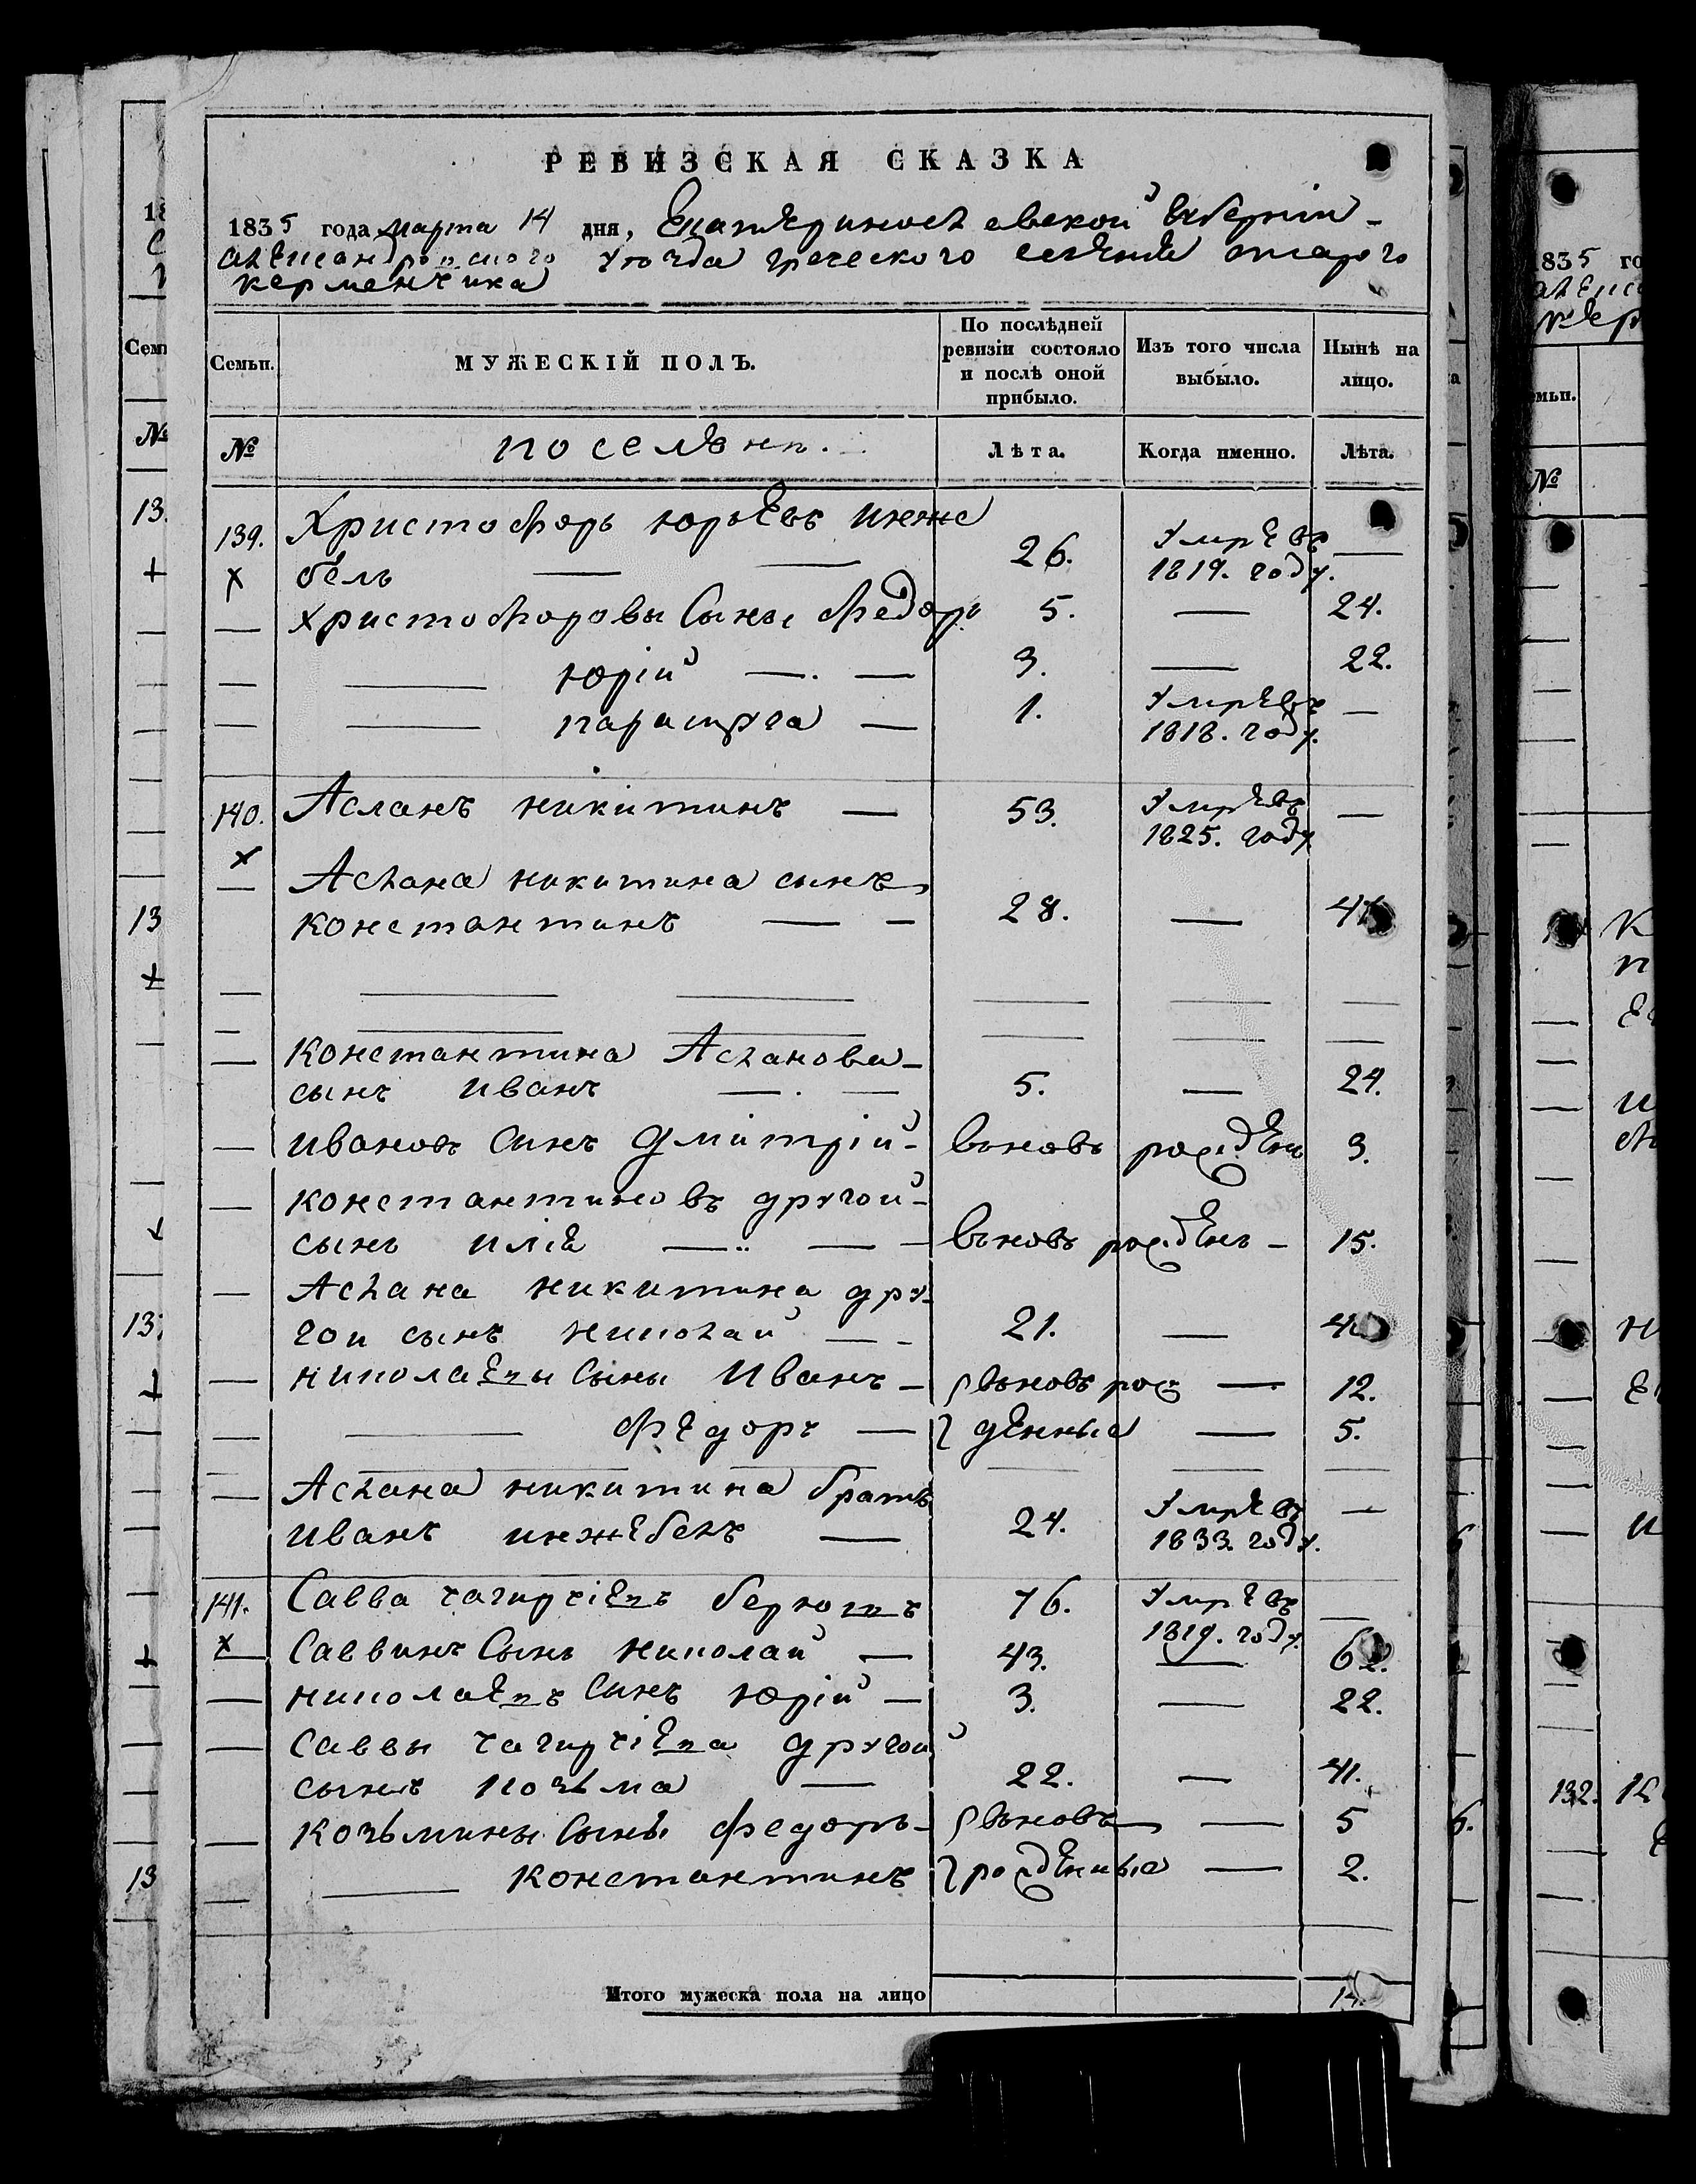 РЕВИЗСКАЯ СКАЗКА
1835 года марта 14 дня, Екатеринославской губерніи
александровского уезда греческого селенія старого
керменчика
Семьи. МУЖЕСКІЙ ПОЛЪ. По послѣдней ревизіи состояло и послѣ оной прибыло. Изъ того числа выбыло. Нынѣ на лицо.
№ поселяне. Лѣта. Когда именно. Лѣта.
139. Христофоръ юрьевъ инже
бель — — 26. Умре въ 1819. году. —
Христофоровы Сыны Федоръ 5. — 24.
— юрій — . — 3. — 22.
— — 1. Умре въ 1818. году. —
140. Асланъ никитинъ — 53. Умре въ 1825. году —
Аслана никитина сынъ
константинъ — — 28. —
константина Асланова
сынъ иванъ — . — 5. — 24.
ивановъ Синъ дмитрій вьновь рожденъ 3.
константиновъ другой
сынъ илія — — вьновь рожденъ 15.
Аслана никитина дру
гои сынъ николай — 21. —
николаевы Сыны Иванъ вьновь рож — 12.
— Федоръ — денные — 5.
Аслана никитина братъ
иванъ инжебель — 24. Умре въ 1833. году. —
141. Савва чагирчіевъ 76. Умре въ 1819. году —
Саввинъ Сынъ николай — 43. —
николаевъ Синъ юрій — 3. — 22.
Саввы чагирчіева другой
сынъ козьма — 22. — 41.
козьмины Сыны федоръ вьновь — 5
— константинъ рожденные — 2.
Итого мужеска пола на лицо